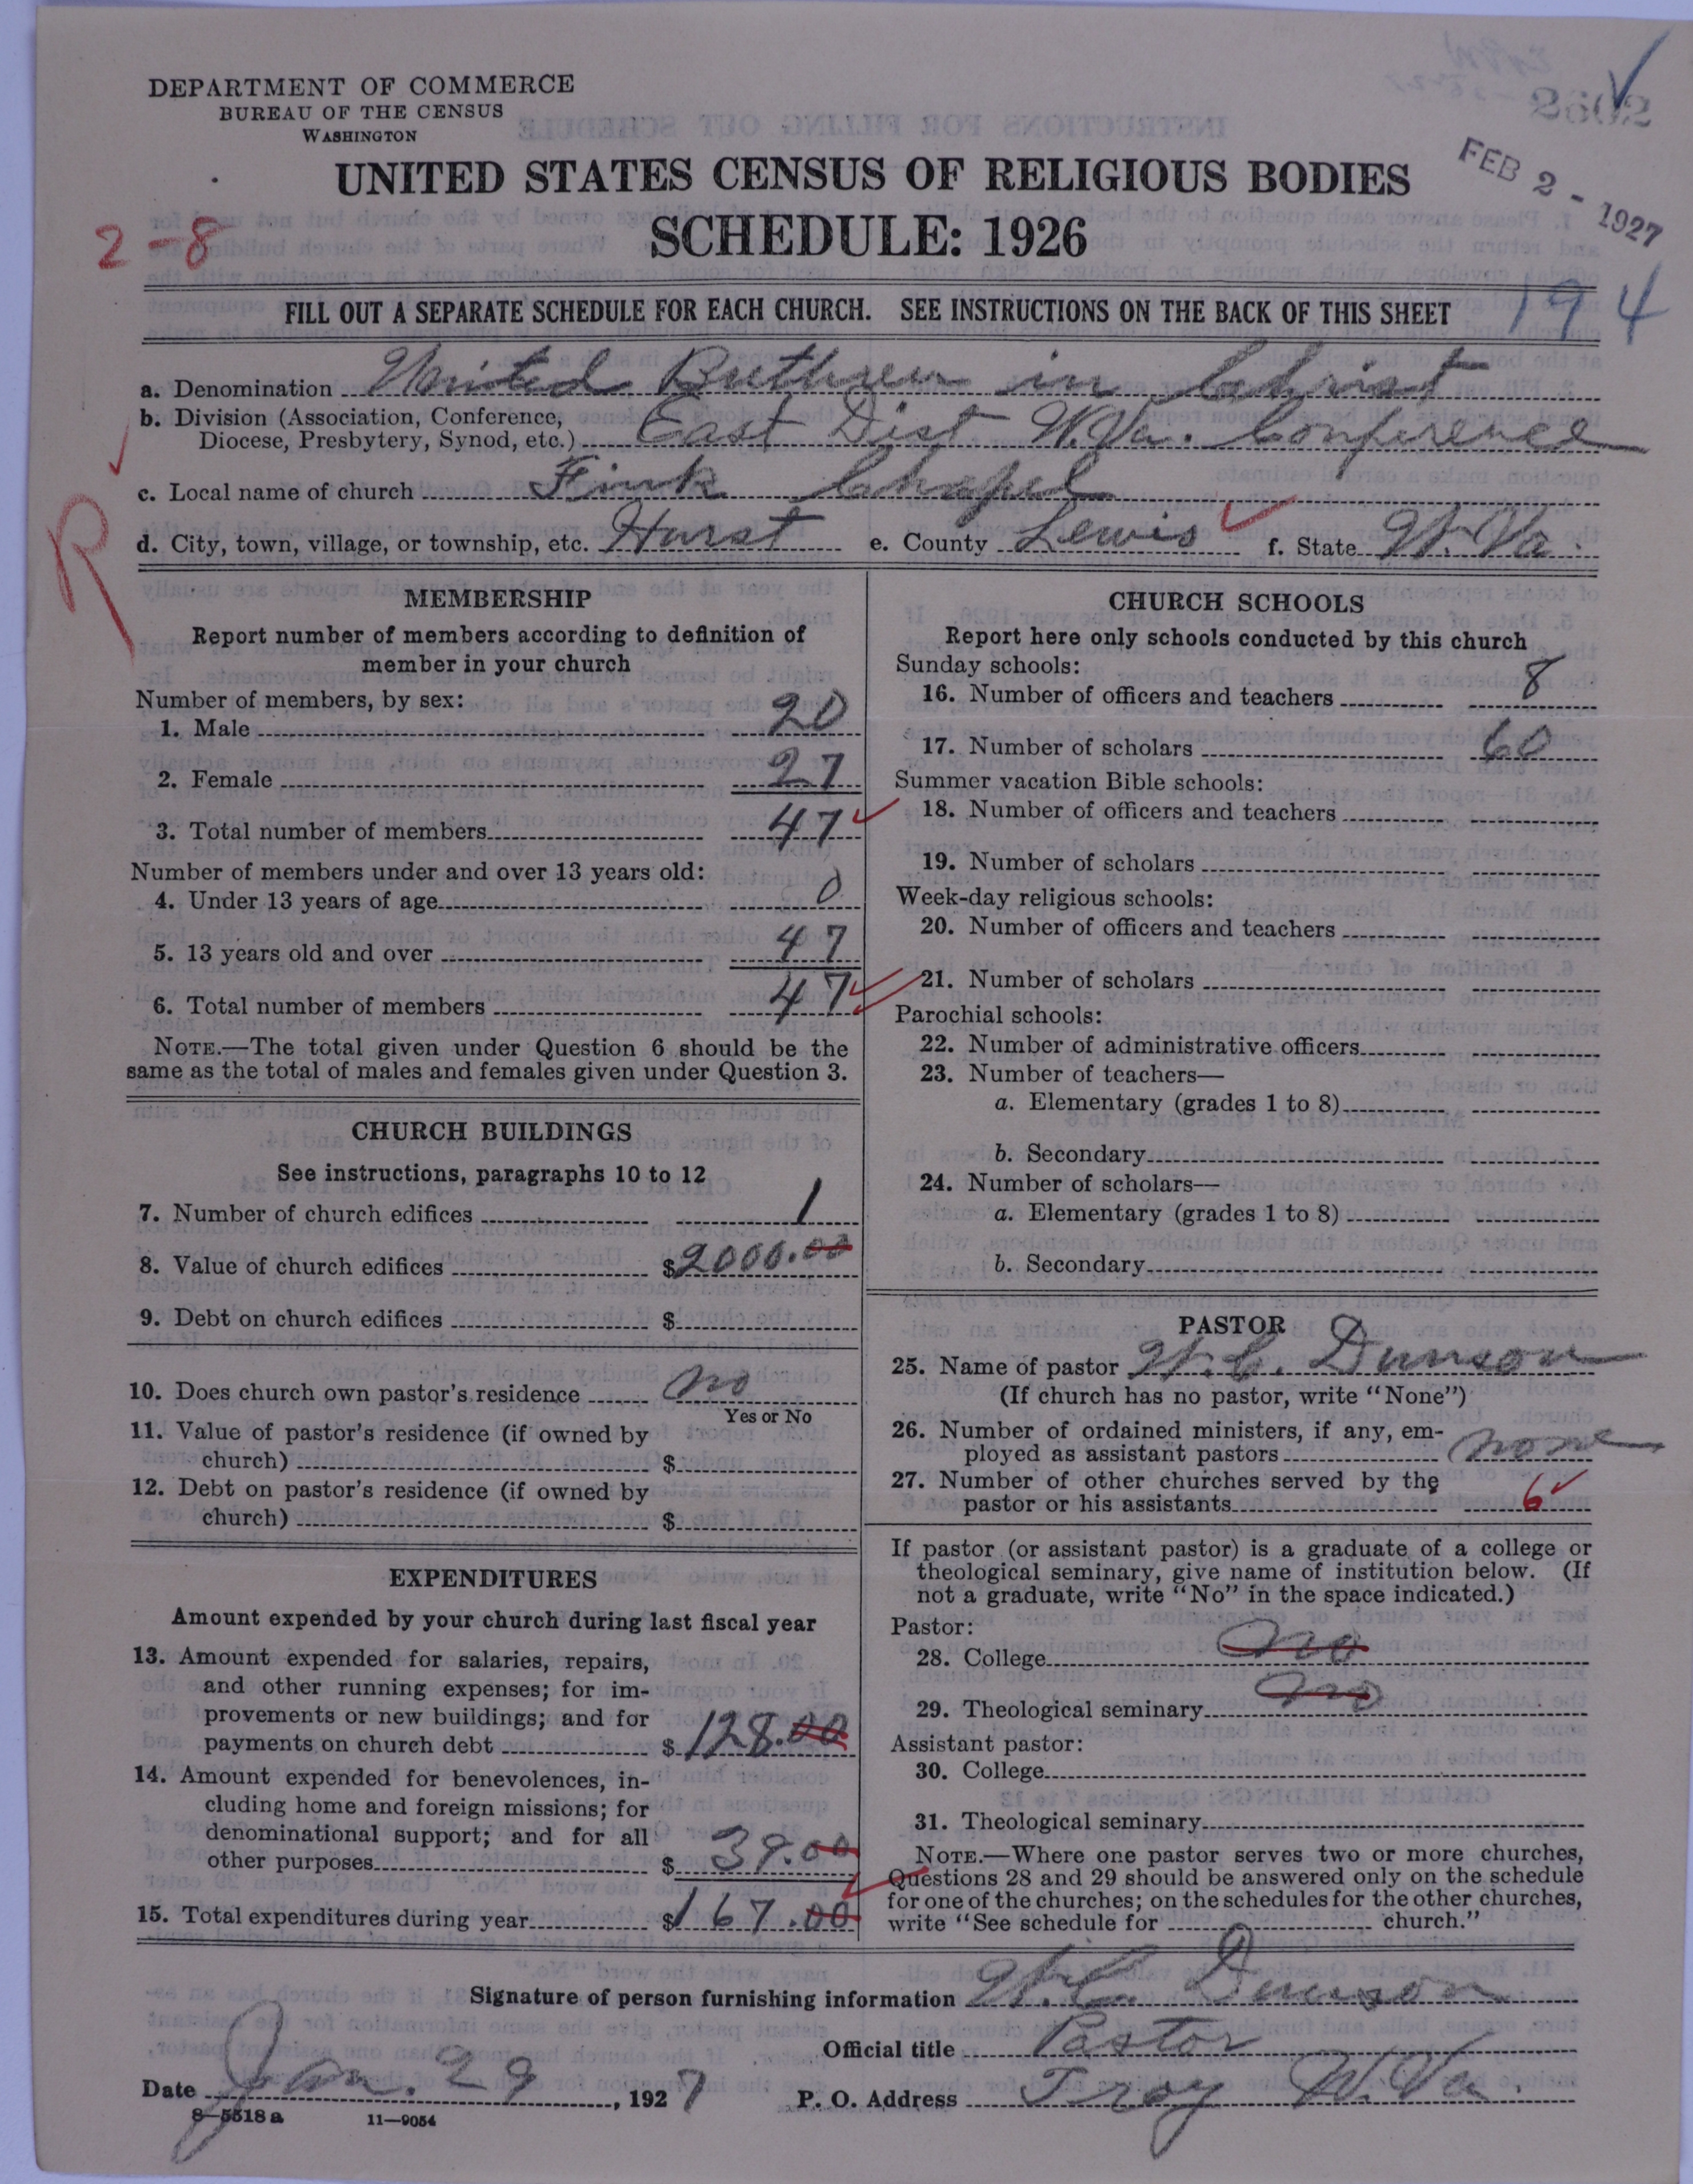 DEPARTMENT OF COMMERCE
BUREAU OF THE CENSUS
WASHINGTON
2602
FEB 2 - 1927
UNITED STATES CENSUS OF RELIGIOUS BODIES
SCHEDULE: 1926
2-8
194
FILL OUT A SEPARATE SCHEDULE FOR EACH CHURCH. SEE INSTRUCTIONS ON THE BACK OF THIS SHEET
a. Denomination United Brethren in Christ
b. Division (Association, Conference,
Diocese, Presbytery, Synod, etc.) East Dist W.Va. Conference
c. Local name of church Fink Chapel
R
d. City, town, village, or township, etc. Hurst e. County Lewis f. State W. Va.
MEMBERSHIP
Report number of members according to definition of
member in your church
Number of members, by sex:
1. Male 20
2. Female 27
3. Total number of members 47
Number of members under and over 13 years old:
4. Under 13 years of age 0
5. 13 years old and over 47
6. Total number of members 47
NOTE.—The total given under Question 6 should be the
same as the total of males and females given under Question 3.
CHURCH BUILDINGS
See instructions, paragraphs 10 to 12
7. Number of church edifices 1
8. Value of church edifices $2000.00
9. Debt on church edifices $
10. Does church own pastor's residence no
Yes or No
11. Value of pastor's residence (if owned by
church) $
12. Debt on pastor's residence (if owned by
church) $
EXPENDITURES
Amount expended by your church during last fiscal year
13. Amount expended for salaries, repairs,
and other running expenses; for im-
provements or new buildings; and for
payments on church debt $128.00
14. Amount expended for benevolences, in-
cluding home and foreign missions; for
denominational support; and for all
other purposes $39.00
15. Total expenditures during year $167.00
CHURCH SCHOOLS
Report here only schools conducted by this church
Sunday schools:
16. Number of officers and teachers 8
17. Number of scholars 60
Summer vacation Bible schools:
18. Number of officers and teachers
19. Number of scholars
Week-day religious schools:
20. Number of officers and teachers
21. Number of scholars
Parochial schools:
22. Number of administrative officers
23. Number of teachers—
a. Elementary (grades 1 to 8)
b. Secondary
24. Number of scholars—
a. Elementary (grades 1 to 8)
b. Secondary
PASTOR
25. Name of pastor W.C. Dunson
(If church has no pastor, write "None")
26. Number of ordained ministers, if any, em-
ployed as assistant pastors none
27. Number of other churches served by the
pastor or his assistants 6
If pastor (or assistant pastor) is a graduate of a college or
theological seminary, give name of institution below. (If
not a graduate, write "No" in the space indicated.)
Pastor:
28. College no
29. Theological seminary no
Assistant pastor:
30. College
31. Theological seminary
NOTE.—Where one pastor serves two or more churches,
Questions 28 and 29 should be answered only on the schedule
for one of the churches; on the schedules for the other churches,
write "See schedule for church."
Signature of person furnishing information W.C. Dunson
Official title Pastor
Date Jan. 29, 1927 P. O. Address Troy W.Va.
8—5518a 11—9054